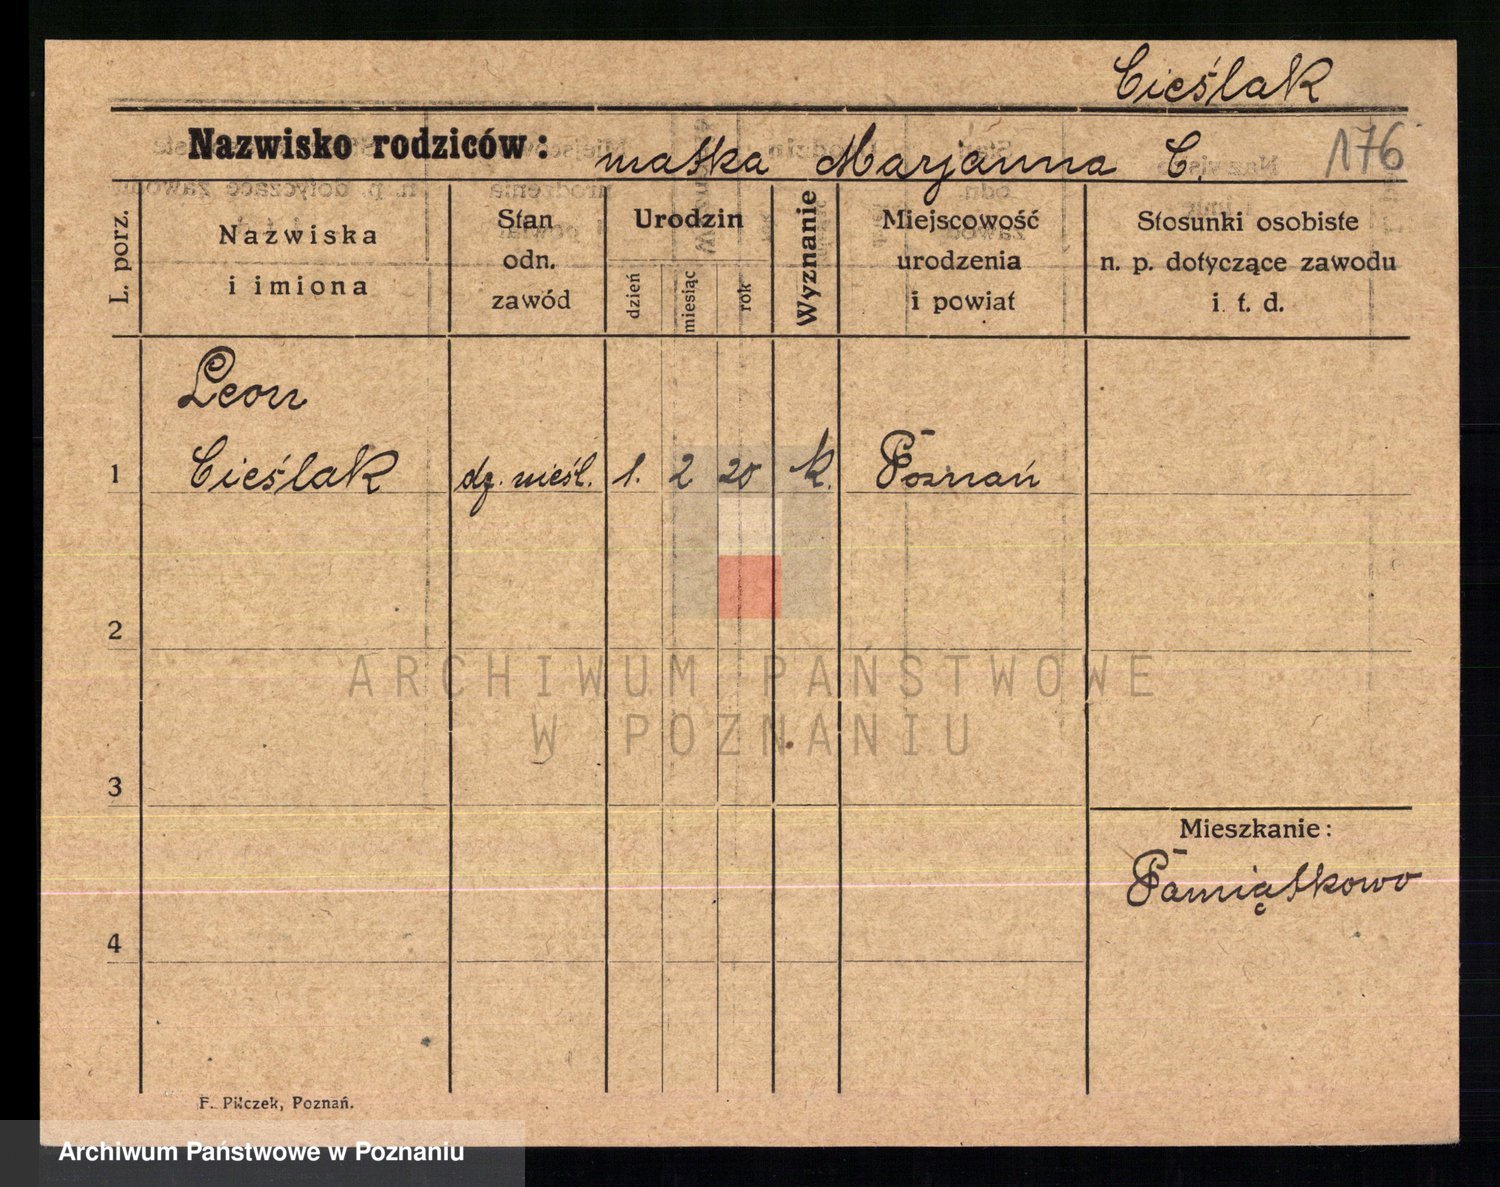 Cieślak
Nazwisko rodziców: matka Marjanna C. 176
L. porz.
Nazwiska
i imiona
Stan
odn.
zawód
Urodzin
dzień
miesiąc
rok
Wyznanie
Miejscowość
urodzenia
i powiat
Stosunki osobiste
n. p. dotyczące zawodu
i. t. d.
Leon
1 Cieślak dz. nieśl. 1. 2 20 k. Poznań
2
ARCHIWUM PAŃSTWOWE
W POZNANIU
3
Mieszkanie:
Pamiątkowo
4
F. Pilczek, Poznań.
Archiwum Państwowe w Poznaniu